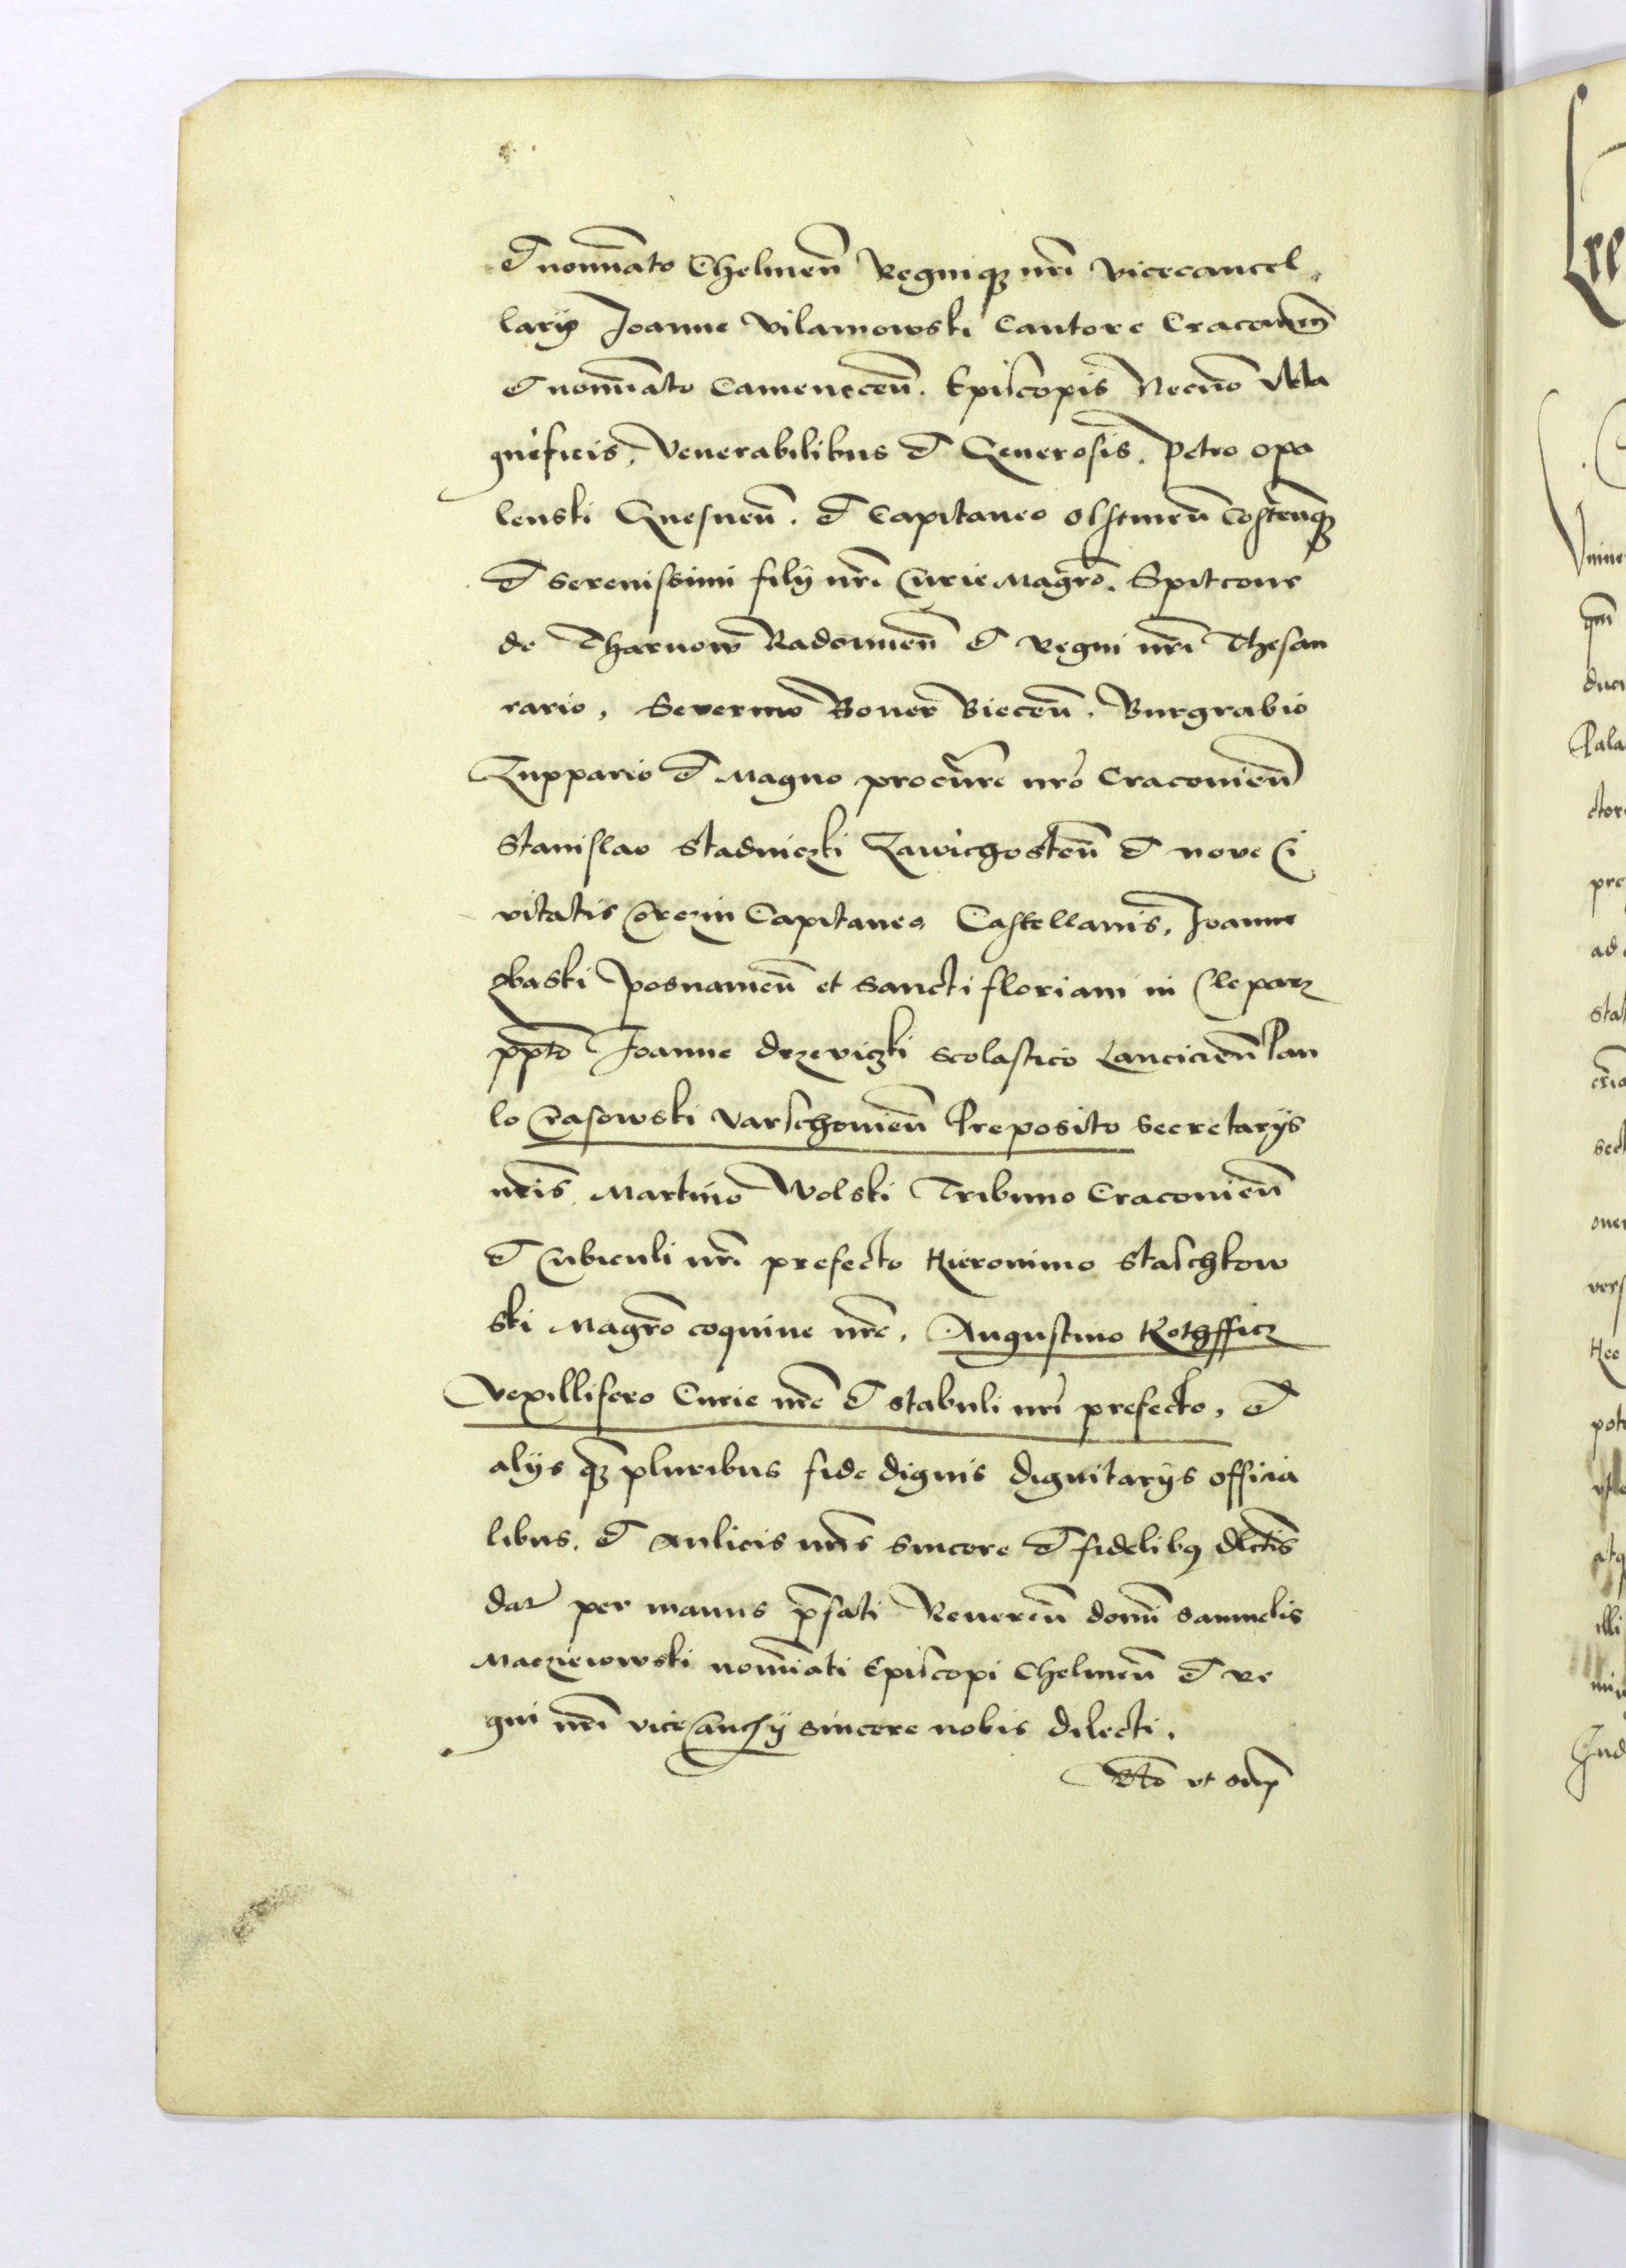 et nominato Chelmeñ Regniqꝫ nrī vicecancel
lario Joanne Vilamowski Cantore Cracovieñ
et nominato Cameneceñ. Episcopis Necnō Ma
gnificis, Venerabilibus et Generosis. Petro Opa
lenski Gnesneñ. et Capitaneo Olstineñ Costenqꝫ
et Serenissimi filij nrī Curie Magrō. Spitcone
de Tharnow Radomieñ et Regni nrī Thesau
rario, Severino Boner Bieceñ. Burgrabio
Zuppario et Magno procurre nrō Cracovieñ
Stanislao Stadniczki Zawichosteñ et nove Ci
vitatis Corczin Capitaneo Castellanis, Joanne
Posnanieñ et Sancti Floriani in Cleparz
ppto Joanne drzeviczki scolastico Lancicieñ Pau
lo Varschovieñ Preposito Secretarijs
nrīs. Martino Wolski Tribuno Cracovieñ
et Cubiculi nrī prefecto Hieronimo Staschkow
ski Magrō coquine nrē, Augustino Kothfficz
Vexillifero Curie nrē et stabuli nrī prefecto, et
alijs qꝫ pluribus fide dignis dignitarijs officia
libus. et Aulicis nrīs sincere et fidelibꝰ dlctis
dat̄ per manus p̄fati Revereñ domī Samuelis
Macziewowski nominati Episcopi Chelmeñ et Re
gni nrī vice sincere nobis dilecti.